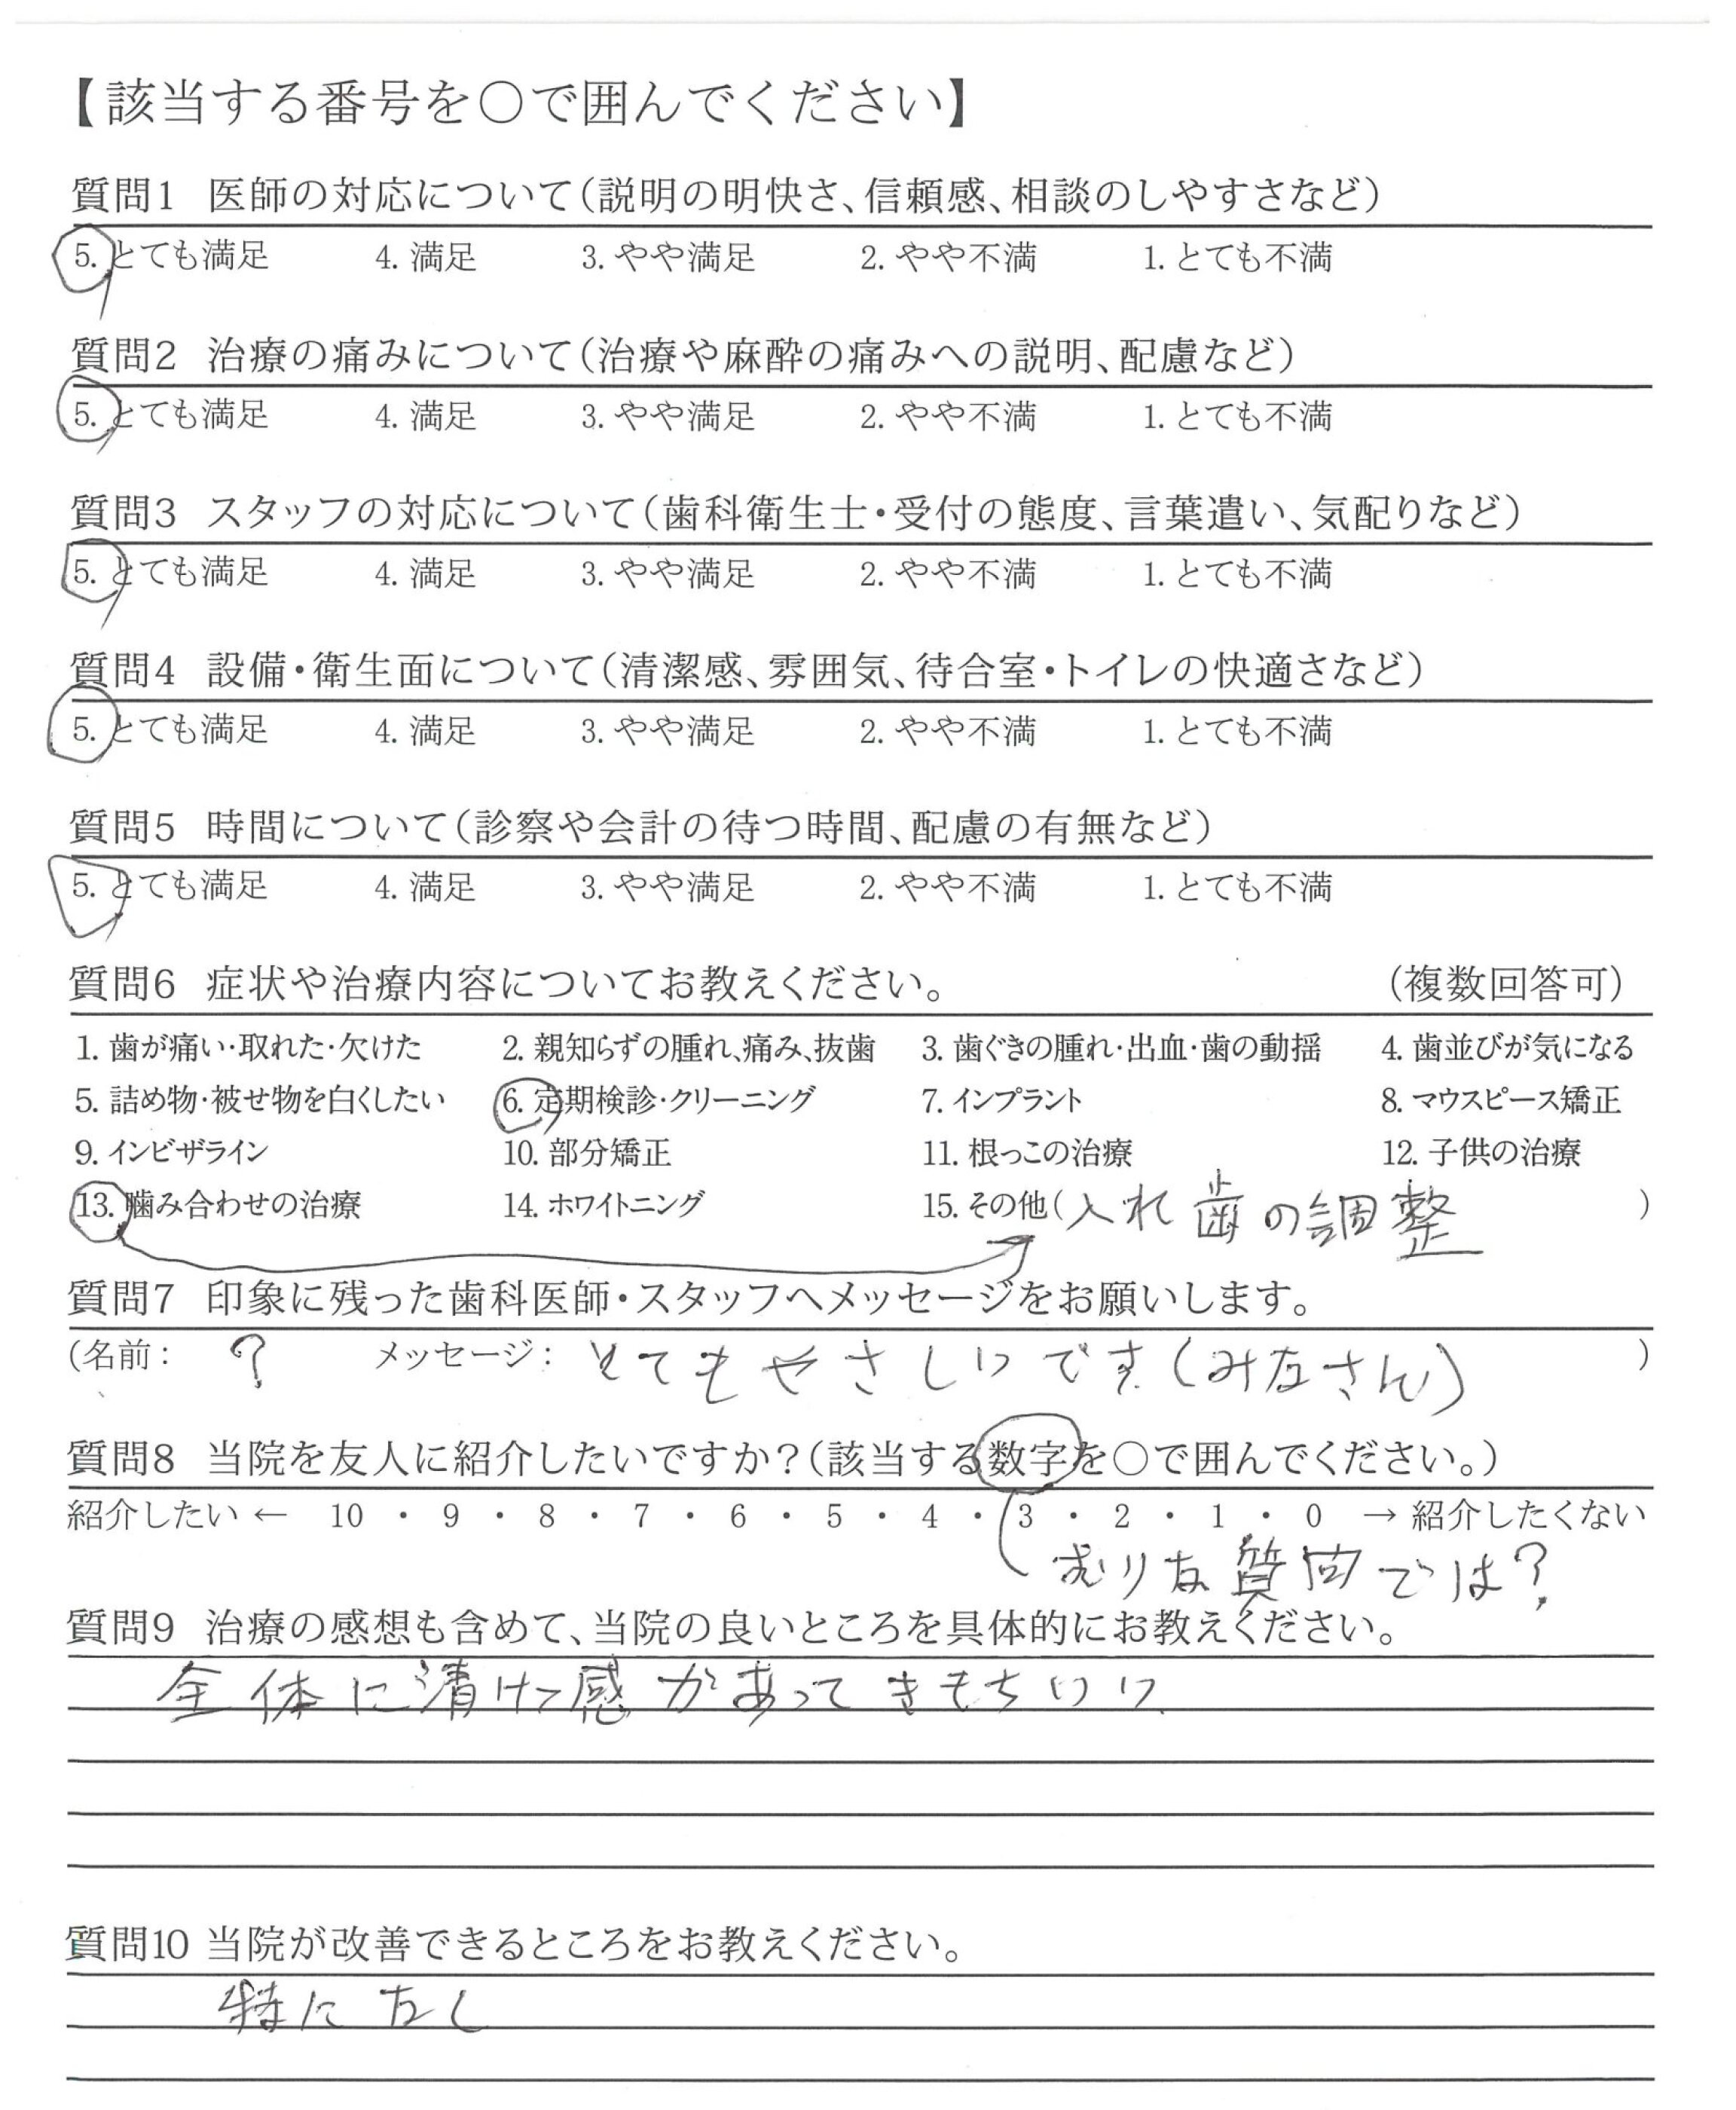 【該当する番号を○で囲んでください】
質問1 医師の対応について(説明の明快さ、信頼感、相談のしやすさなど)
5. とても満足 4. 満足 3. やや満足 2. やや不満 1. とても不満
質問2 治療の痛みについて(治療や麻酔の痛みへの説明、配慮など)
5. とても満足 4. 満足 3. やや満足 2. やや不満 1. とても不満
質問3 スタッフの対応について(歯科衛生士・受付の態度、言葉遣い、気配りなど)
5. とても満足 4. 満足 3. やや満足 2. やや不満 1. とても不満
質問4 設備・衛生面について(清潔感、雰囲気、待合室・トイレの快適さなど)
5. とても満足 4. 満足 3. やや満足 2. やや不満 1. とても不満
質問5 時間について(診察や会計の待つ時間、配慮の有無など)
5. とても満足 4. 満足 3. やや満足 2. やや不満 1. とても不満
質問6 症状や治療内容についてお教えください。 (複数回答可)
1. 歯が痛い・取れた・欠けた 2. 親知らずの腫れ、痛み、抜歯 3. 歯ぐきの腫れ・出血・歯の動揺 4. 歯並びが気になる
5. 詰め物・被せ物を白くしたい 6. 定期検診・クリーニング 7. インプラント 8. マウスピース矯正
9. インビザライン 10. 部分矯正 11. 根っこの治療 12. 子供の治療
13. 噛み合わせの治療 14. ホワイトニング 15. その他(入れ歯の調整)
質問7 印象に残った歯科医師・スタッフへメッセージをお願いします。
(名前: ? メッセージ: とてもやさしいです(みなさん))
質問8 当院を友人に紹介したいですか?(該当する数字を○で囲んでください。)
紹介したい ← 10 ・ 9 ・ 8 ・ 7 ・ 6 ・ 5 ・ 4 ・ 3 ・ 2 ・ 1 ・ 0 → 紹介したくない
むりな質問では?
質問9 治療の感想も含めて、当院の良いところを具体的にお教えください。
全体に清けつ感があってきもちいい
質問10 当院が改善できるところをお教えください。
特になし